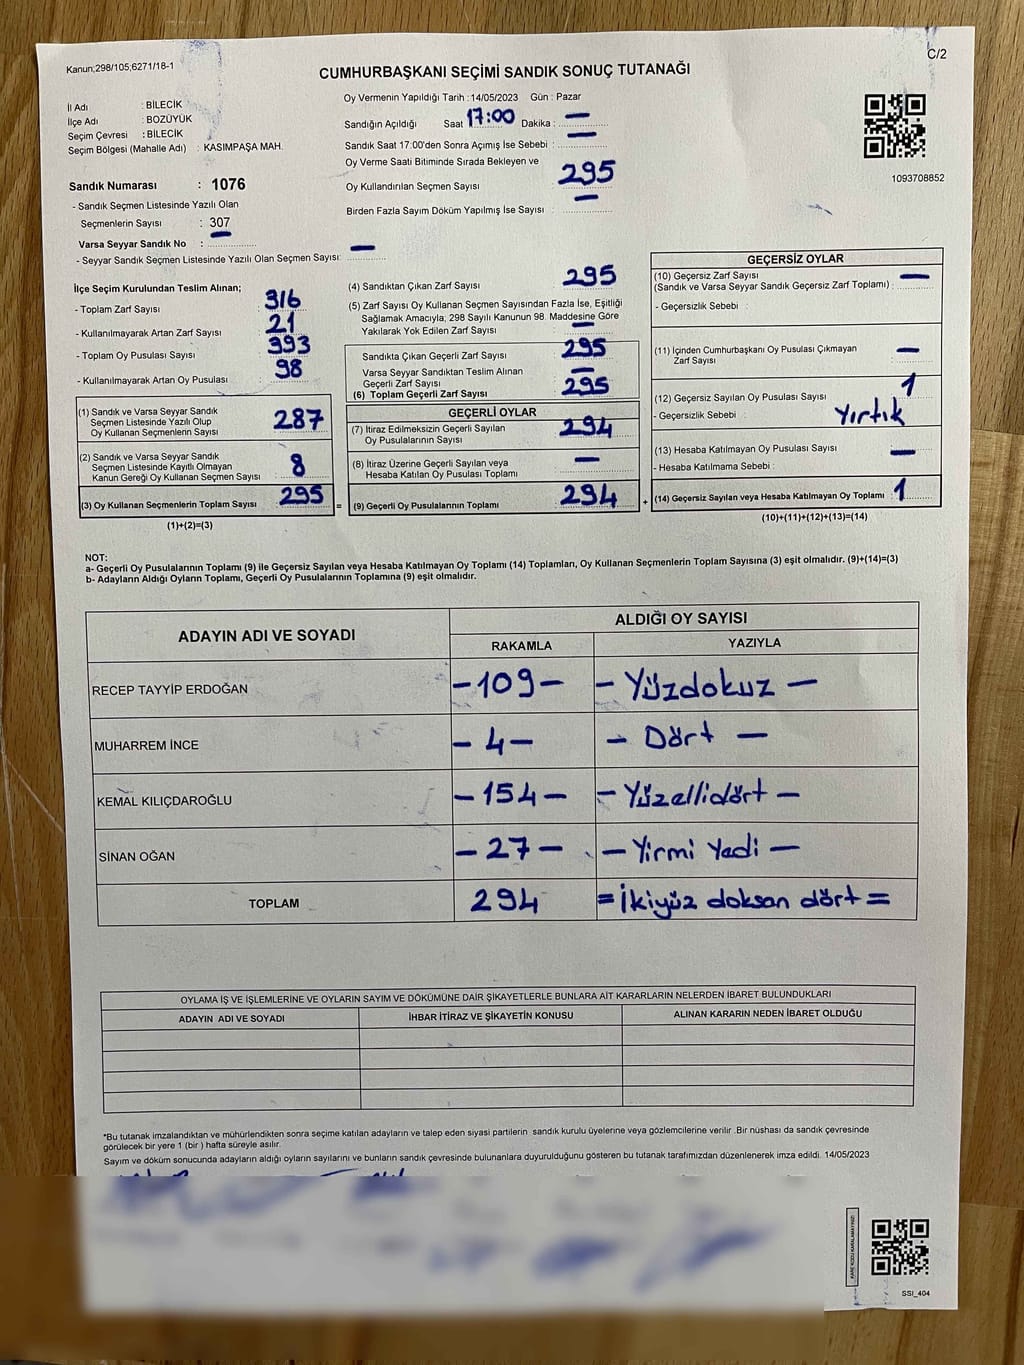 Kanun;298/105;6271/18-1
C/2
CUMHURBAŞKANI SEÇİMİ SANDIK SONUÇ TUTANAĞI
İl Adı : BİLECİK
İlçe Adı : BOZÜYÜK
Seçim Çevresi : BİLECİK
Seçim Bölgesi (Mahalle Adı) : KASIMPAŞA MAH.
Sandık Numarası : 1076
- Sandık Seçmen Listesinde Yazılı Olan
Seçmenlerin Sayısı : 307
Varsa Seyyar Sandık No : —
- Seyyar Sandık Seçmen Listesinde Yazılı Olan Seçmen Sayısı: —
Oy Vermenin Yapıldığı Tarih : 14/05/2023 Gün : Pazar
Sandığın Açıldığı Saat 17:00 Dakika : —
Sandık Saat 17:00'den Sonra Açımış İse Sebebi : —
Oy Verme Saati Bitiminde Sırada Bekleyen ve
Oy Kullandırılan Seçmen Sayısı : 295
Birden Fazla Sayım Döküm Yapılmış İse Sayısı : —
1093708852
İlçe Seçim Kurulundan Teslim Alınan;
- Toplam Zarf Sayısı : 316
- Kullanılmayarak Artan Zarf Sayısı : 21
- Toplam Oy Pusulası Sayısı : 393
- Kullanılmayarak Artan Oy Pusulası : 98
(1) Sandık ve Varsa Seyyar Sandık
Seçmen Listesinde Yazılı Olup
Oy Kullanan Seçmenlerin Sayısı 287
(2) Sandık ve Varsa Seyyar Sandık
Seçmen Listesinde Kayıtlı Olmayan
Kanun Gereği Oy Kullanan Seçmen Sayısı 8
(3) Oy Kullanan Seçmenlerin Toplam Sayısı 295
(1)+(2)=(3)
(4) Sandıktan Çıkan Zarf Sayısı : 295
(5) Zarf Sayısı Oy Kullanan Seçmen Sayısından Fazla İse, Eşitliği
Sağlamak Amacıyla; 298 Sayılı Kanunun 98. Maddesine Göre
Yakılarak Yok Edilen Zarf Sayısı : —
Sandıkta Çıkan Geçerli Zarf Sayısı : 295
Varsa Seyyar Sandıktan Teslim Alınan
Geçerli Zarf Sayısı : —
(6) Toplam Geçerli Zarf Sayısı : 295
GEÇERLİ OYLAR
(7) İtiraz Edilmeksizin Geçerli Sayılan
Oy Pusulalarının Sayısı : 294
(8) İtiraz Üzerine Geçerli Sayılan veya
Hesaba Katılan Oy Pusulası Toplamı : —
= (9) Geçerli Oy Pusulalarının Toplamı : 294 +
GEÇERSİZ OYLAR
(10) Geçersiz Zarf Sayısı
(Sandık ve Varsa Seyyar Sandık Geçersiz Zarf Toplamı) : —
- Geçersizlik Sebebi :
(11) İçinden Cumhurbaşkanı Oy Pusulası Çıkmayan
Zarf Sayısı : —
(12) Geçersiz Sayılan Oy Pusulası Sayısı : 1
- Geçersizlik Sebebi : Yırtık
(13) Hesaba Katılmayan Oy Pusulası Sayısı : —
- Hesaba Katılmama Sebebi :
(14) Geçersiz Sayılan veya Hesaba Katılmayan Oy Toplamı : 1
(10)+(11)+(12)+(13)=(14)
NOT:
a- Geçerli Oy Pusulalarının Toplamı (9) ile Geçersiz Sayılan veya Hesaba Katılmayan Oy Toplamı (14) Toplamları, Oy Kullanan Seçmenlerin Toplam Sayısına (3) eşit olmalıdır. (9)+(14)=(3)
b- Adayların Aldığı Oyların Toplamı, Geçerli Oy Pusulalarının Toplamına (9) eşit olmalıdır.
ADAYIN ADI VE SOYADI ALDIĞI OY SAYISI
RAKAMLA YAZIYLA
RECEP TAYYİP ERDOĞAN -109- - Yüzdokuz -
MUHARREM İNCE -4- - Dört -
KEMAL KILIÇDAROĞLU -154- - Yüzellidört -
SİNAN OĞAN -27- - Yirmi Yedi -
TOPLAM 294 = İkiyüz doksan dört =
OYLAMA İŞ VE İŞLEMLERİNE VE OYLARIN SAYIM VE DÖKÜMÜNE DAİR ŞİKAYETLERLE BUNLARA AİT KARARLARIN NELERDEN İBARET BULUNDUKLARI
ADAYIN ADI VE SOYADI İHBAR İTİRAZ VE ŞİKAYETİN KONUSU ALINAN KARARIN NEDEN İBARET OLDUĞU
*Bu tutanak imzalandıktan ve mühürlendikten sonra seçime katılan adayların ve talep eden siyasi partilerin sandık kurulu üyelerine veya gözlemcilerine verilir .Bir nüshası da sandık çevresinde
görülecek bir yere 1 (bir ) hafta süreyle asılır.
Sayım ve döküm sonucunda adayların aldığı oyların sayılarını ve bunların sandık çevresinde bulunanlara duyurulduğunu gösteren bu tutanak tarafımızdan düzenlenerek imza edildi. 14/05/2023
KARE KODU KARALAMAYINIZ!
SSI_404